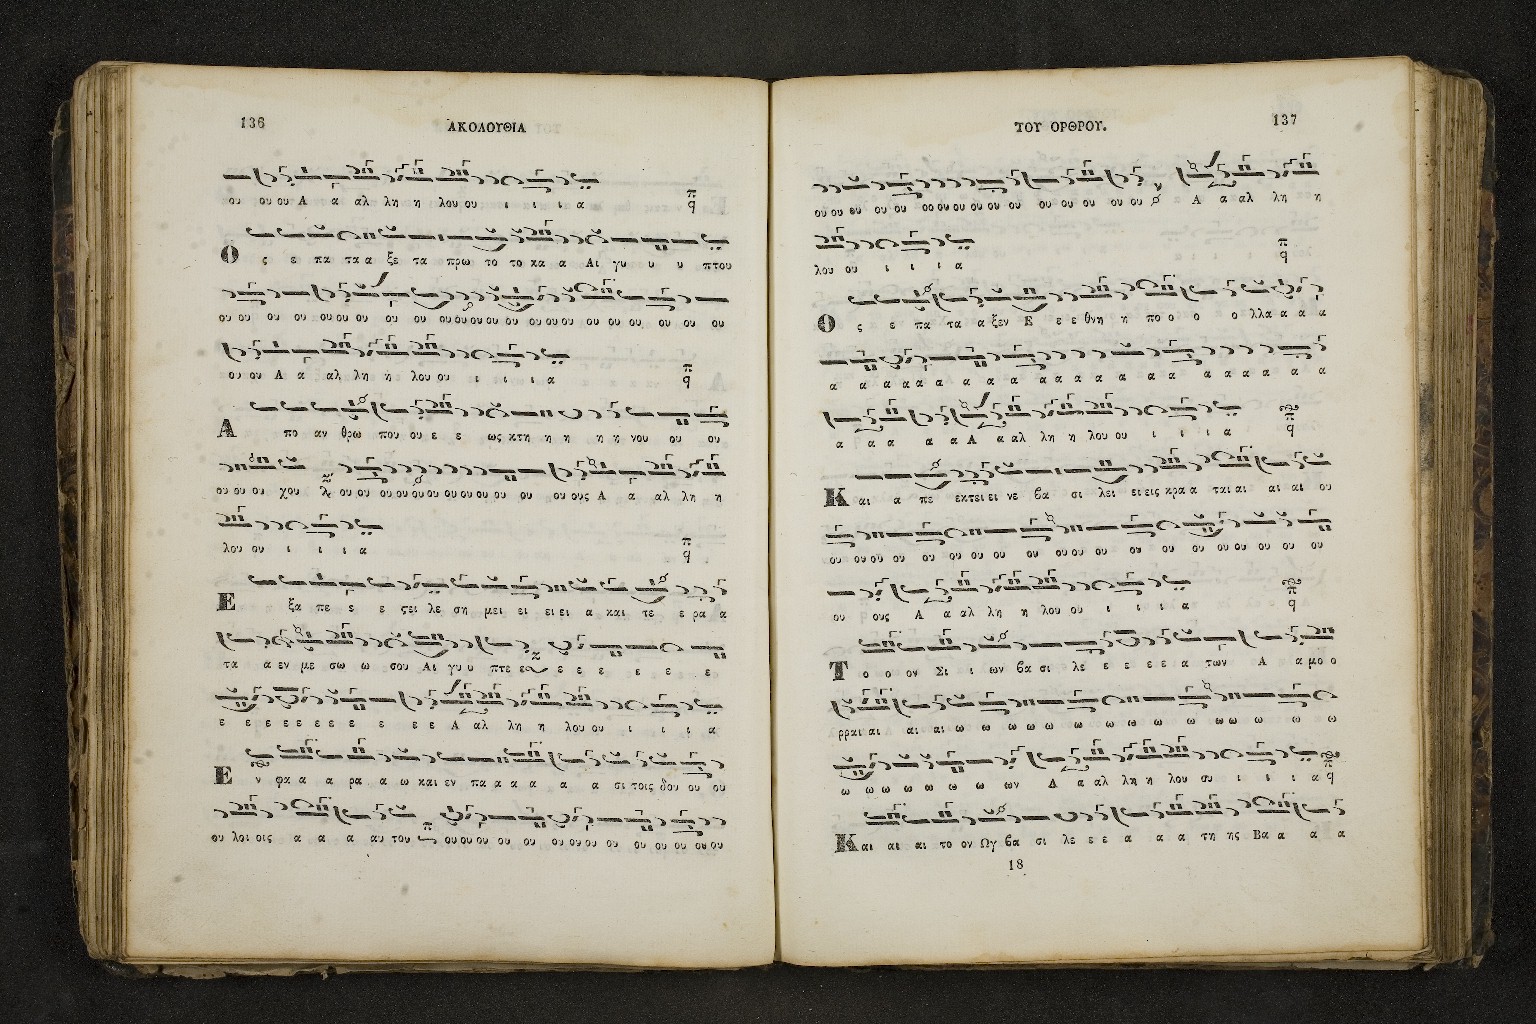 136
ΑΚΟΛΟΥΘΙΑ
ου ου ου Α α αλ λη η λου ου ι ι ι α
Ος ε πα τα α ξε τα πρω το το κα α Αι γυ υ υ πτου
ου ου ου ου ου ου ου ου ου ου ου ου ου ου ου ου ου ου ου ου ου ου
ου ου Α α αλ λη η λου ου ι ι ι α
Α πο αν θρω που ου ε ε ως κτη η η η η νου ου ου
ου ου ου χου ου ου ου ου ου ου ου ου ου ου ου ου ου ους Α α αλ λη η
λου ου ι ι ι α
Ε ξα πε ε ε ςει λε ση μει ει ει ει α και τε ε ρα α
τα α εν με σω ω σου Αι γυ υ πτε ε ε ε ε ε ε ε
ε ε ε ε ε ε ε ε ε ε ε ε Α αλ λη η λου ου ι ι ι α
Εν φα α α ρα α ω και εν πα α α α α α σι τοις δου ου ου
ου λοι οις α α α αυ του ου ου ου ου ου ου ου ου ου ου ου ου ου ου
ΤΟΥ ΟΡΘΡΟΥ.
137
ου ου ου ου ου ου ου ου ου ου ου ου ου ου ου ου ου ου Α α αλ λη η
λου ου ι ι ι α
Ος ε πα τα α ξεν Ε ε ε θνη η πο ο ο ο λλα α α α
α α α α α α α α α α α α α α α α α α α α α α
α α α α α Α α αλ λη η λου ου ι ι ι α
Και α πε εκτει ει νε βα σι λει ει εις κρα α ται αι αι αι ου
ου ου ου ου ου ου ου ου ου ου ου ου ου ου ου ου ου ου ου ου
ου ους Α α αλ λη η λου ου ι ι ι α
Το ο ον Σι ι ων βα σι λε ε ε ε ε α των Α α μο ο
ρραι αι αι αι ω ω ω ω ω ω ω ω ω ω ω ω ω ω
ω ω ω ω ω ω ω ων Α α αλ λη η λου ου ι ι ι α
Και αι αι το ον Ωγ βα σι λε ε ε α α α τη ης Βα α α α
18